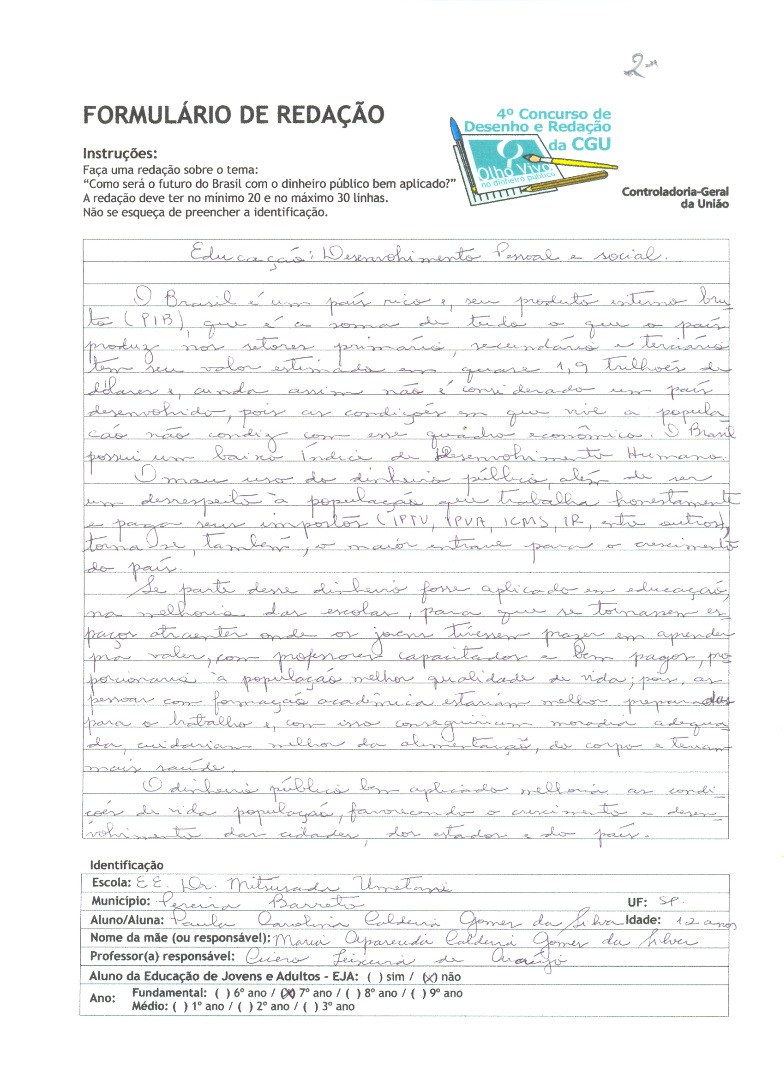 2ª
FORMULÁRIO DE REDAÇÃO
4º Concurso de
Desenho e Redação
da CGU
Olho Vivo
no dinheiro público
Controladoria-Geral
da União
Instruções:
Faça uma redação sobre o tema:
“Como será o futuro do Brasil com o dinheiro público bem aplicado?”
A redação deve ter no mínimo 20 e no máximo 30 linhas.
Não se esqueça de preencher a identificação.
Educação: Desenvolvimento Pessoal e social.
O Brasil é um país rico e, seu produto interno bru
to (PIB), que é a soma de tudo o que o país
produz nos setores primário, secundário e terciário
tem seu valor estimado em quase 1,9 trilhões de
dólares e, ainda assim não é considerado um país
desenvolvido, pois as condições em que vive a popula
ção não condiz com esse quadro econômico. O Brasil
possui um baixo Índice de Desenvolvimento Humano.
O mau uso do dinheiro público, além de ser
um desrespeito à população que trabalha honestamente
e paga seus impostos (IPTU, IPVA, ICMS, IR, entre outros),
torna-se, também, o maior entrave para o crescimento
do país.
Se parte desse dinheiro fosse aplicado em educação,
na melhoria das escolas, para que se tornassem es
paços atraentes onde os jovens tivessem prazer em aprender
pra valer, com professores capacitados e bem pagos, pro
porcionaria à população melhor qualidade de vida; pois, as
pessoas com formação acadêmica estariam melhor preparadas
para o trabalho e, com isso conseguiriam moradia adequa
da, cuidariam melhor da alimentação, do corpo e teriam
mais saúde.
O dinheiro público bem aplicado melhoria as condi
ções de vida população, favorecendo o crescimento e desen
volvimento das cidades, dos estados e do país.
Identificação
Escola: EE. Dr. Mitsusada Umetani
Município: Pereira Barreto UF: SP.
Aluno/Aluna: Paula Carolina Caldeira Gomes da Silva Idade: 12 anos
Nome da mãe (ou responsável): Maria Aparecida Caldeira Gomes da Silva
Professor(a) responsável: Cícero Teixeira de Araújo
Aluno da Educação de Jovens e Adultos - EJA: ( ) sim / (x) não
Ano: Fundamental: ( ) 6º ano / (x) 7º ano / ( ) 8º ano / ( ) 9º ano
Médio: ( ) 1º ano / ( ) 2º ano / ( ) 3º ano